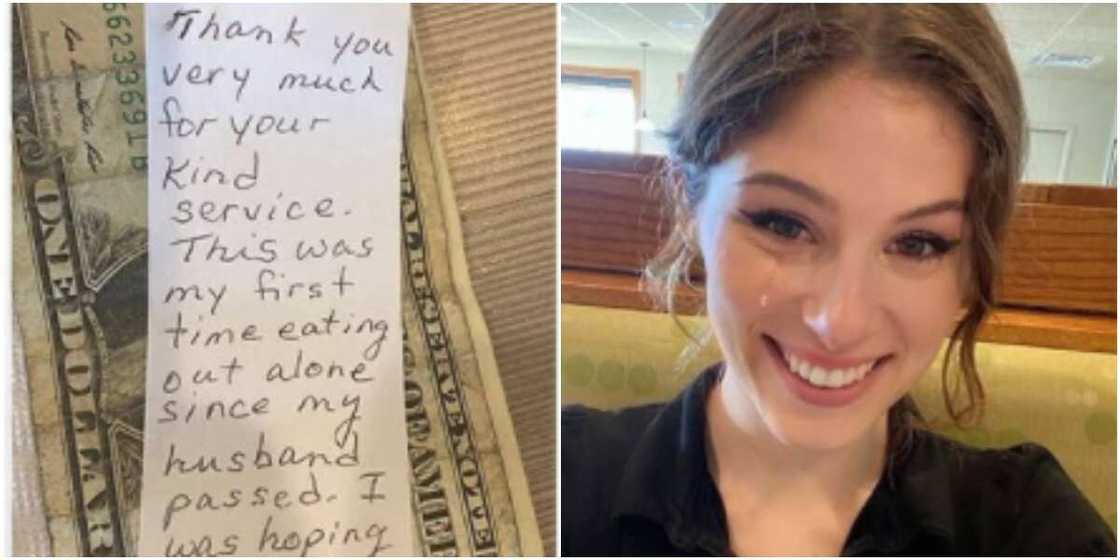 Thank you
very much
for your
kind
service.
This was
my first
time eating
out alone
since my
husband
passed. I
was hoping
ONE DOLLAR